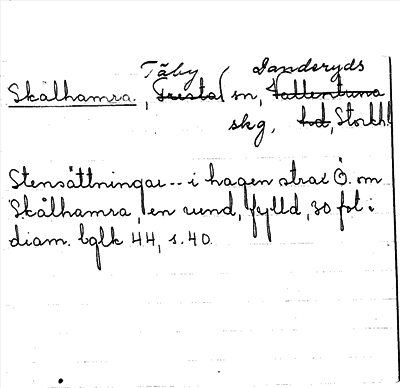 Täby Danderyds
Skålhamra, (Fresta) sn, Vallentuna
skg, hd, Stockh.
Stensättningar -- i hagen strax Ö. om
Skålhamra, en rund, fylld, 30 fot i
diam. bglk 44, s. 40.